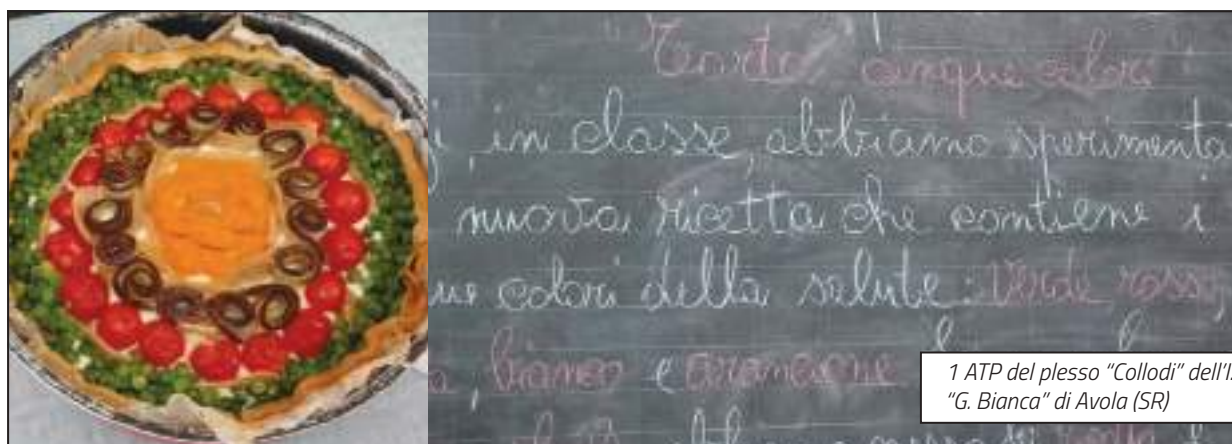 Torta cinque colori
in classe, abbiamo sperimenta
nuova ricetta che contiene i
ue colori della salute: Verde ross
a, bianco e arancione
1 ATP del plesso "Collodi" dell'I.
"G. Bianca" di Avola (SR)